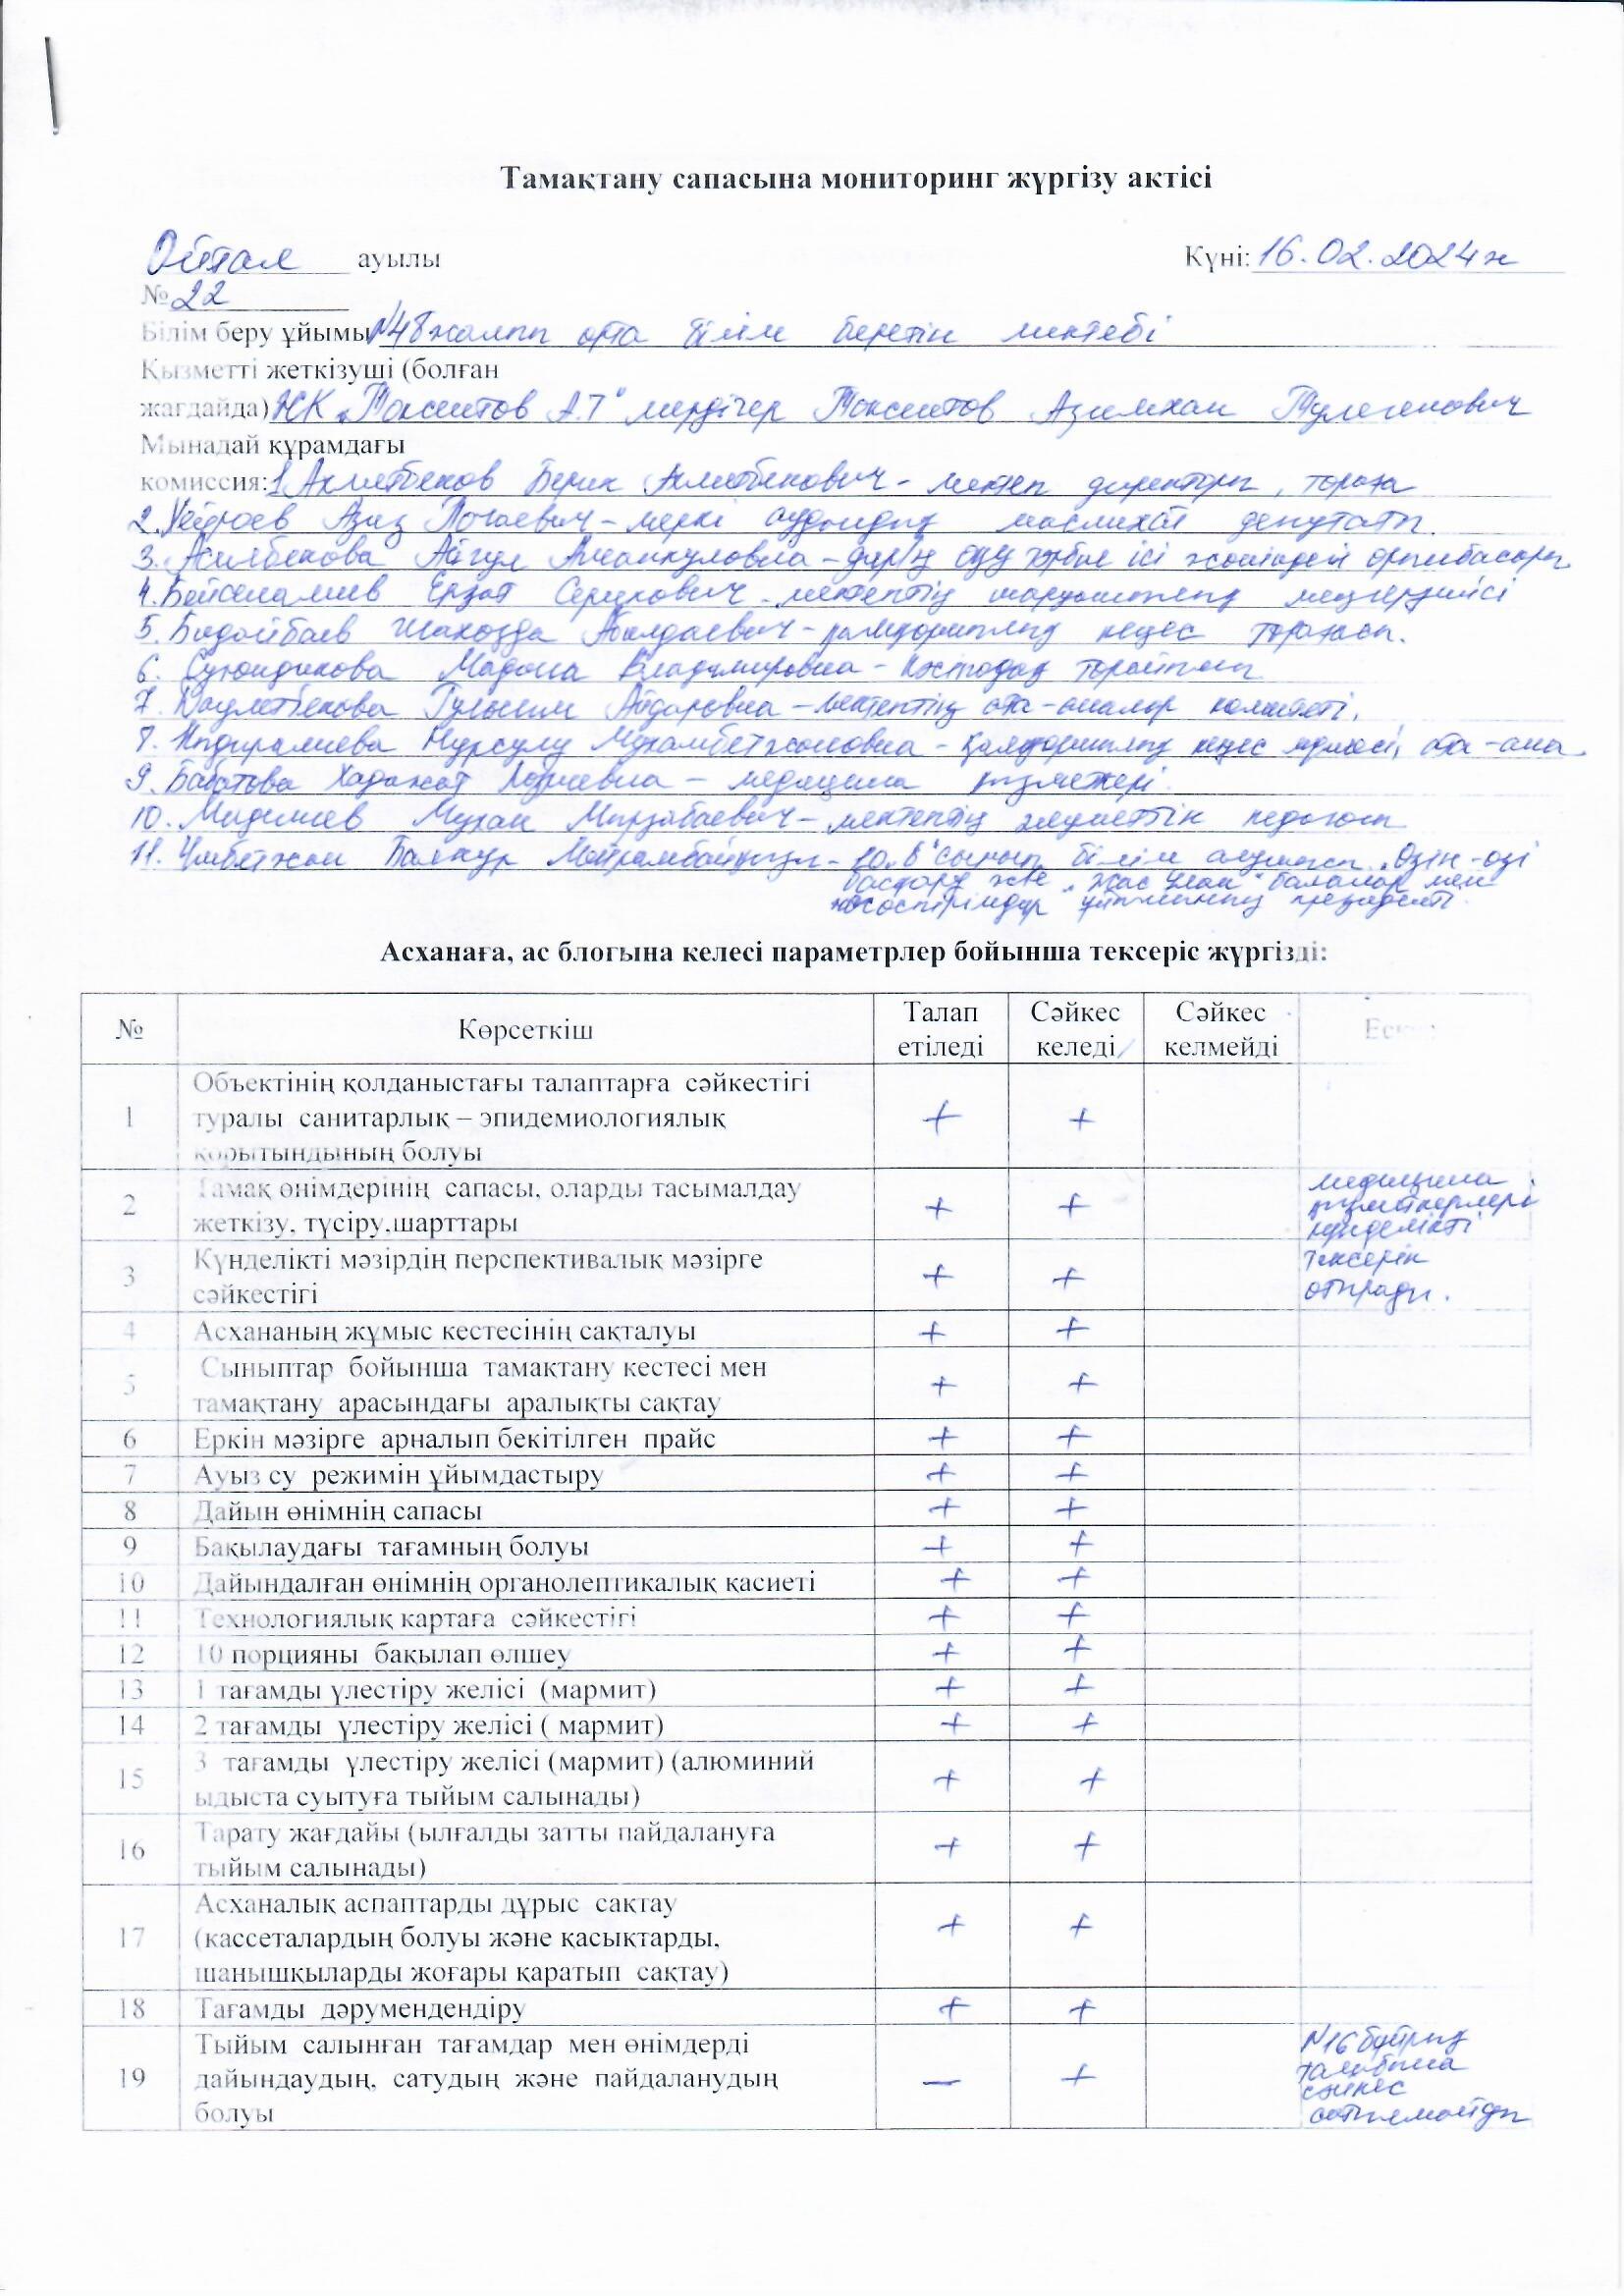 Тамақтану сапасына мониторинг жүргізу актісі
Ойтал ауылы Күні: 16.02.2024ж
№ 22
Білім беру ұйымы №48 жалпы орта білім беретін мектебі
Қызметті жеткізуші (болған
жағдайда) ЖК "Токсеитов А.Т" мердігер Токсеитов Азимхан Тулегенович
Мынадай құрамдағы
комиссия: 1. Ахметбеков Берик Ахметбекович - мектеп директоры, төраға
2. Азиз - меркі аудандық маслихат депутаты.
3. Асилбекова Айгул Аманкуловна - дир-ң оқу тәрбие ісі жөніндегі орынбасары
4. Бейсеналиев Ерзат Серикович - мектептің шаруашылық меңгерушісі
5. Бидайбаев Шахозда Абилдаевич - қамқоршылық кеңес төрағасы.
6. Суюндикова Мадона Владимировна - кәсіподақ төрайымы
7. Даулетбекова Гулшим Айдаровна - мектептің ата-аналар комитеті.
8. Нурсулу Мухамбетжановна - қамқоршылық кеңес мүшесі, ата-ана
9. Бабатова Хадажат - медицина қызметкері.
10. Мидишев Мухан Мырзабаевич - мектептің әлеуметтік педагогы
11. Үмбетжан Балнур Мейрамбайқызы - 10 "б" сынып білім алушысы. Өзін-өзі
басқару және "Жас ұлан" балалар мен
жасөспірімдер ұйымының президенті.
Асханаға, ас блогына келесі параметрлер бойынша тексеріс жүргізді:
№ Көрсеткіш Талап етіледі Сәйкес келеді Сәйкес келмейді
1 Объектінің қолданыстағы талаптарға сәйкестігі
туралы санитарлық – эпидемиологиялық + +
қорытындының болуы
2 Тамақ өнімдерінің сапасы, оларды тасымалдау
жеткізу, түсіру,шарттары + + медицина қызметкерлері күнделікті
3 Күнделікті мәзірдің перспективалық мәзірге
сәйкестігі + + тексеріп отырады.
4 Асхананың жұмыс кестесінің сақталуы + +
5 Сыныптар бойынша тамақтану кестесі мен
тамақтану арасындағы аралықты сақтау + +
6 Еркін мәзірге арналып бекітілген прайс + +
7 Ауыз су режимін ұйымдастыру + +
8 Дайын өнімнің сапасы + +
9 Бақылаудағы тағамның болуы + +
10 Дайындалған өнімнің органолептикалық қасиеті + +
11 Технологиялық картаға сәйкестігі + +
12 10 порцияны бақылап өлшеу + +
13 1 тағамды үлестіру желісі (мармит) + +
14 2 тағамды үлестіру желісі ( мармит) + +
15 3 тағамды үлестіру желісі (мармит) (алюминий
ыдыста суытуға тыйым салынады) + +
16 Тарату жағдайы (ылғалды затты пайдалануға
тыйым салынады) + +
17 Асханалық аспаптарды дұрыс сақтау
(кассеталардың болуы және қасықтарды, + +
шанышқыларды жоғары қаратып сақтау)
18 Тағамды дәрумендендіру + +
19 Тыйым салынған тағамдар мен өнімдерді
дайындаудың, сатудың және пайдаланудың — + №16 бұйрық талабына сәйкес сатылмайды
болуы